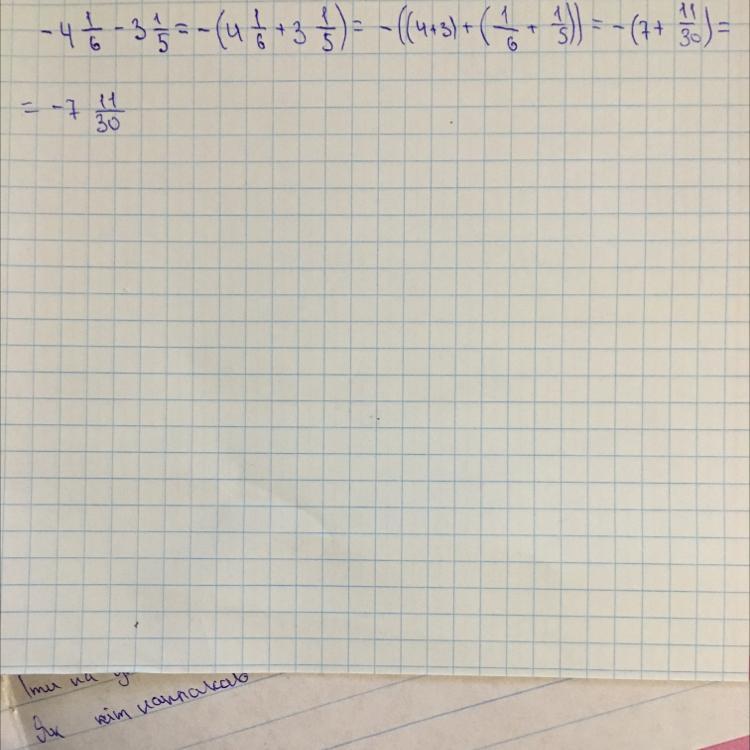 -4 1/6 - 3 1/5 = -(4 1/6 + 3 1/5) = -((4+3) + (1/6 + 1/5)) = -(7 + 11/30) =
= -7 11/30
Іти на
Як кіт наплакав